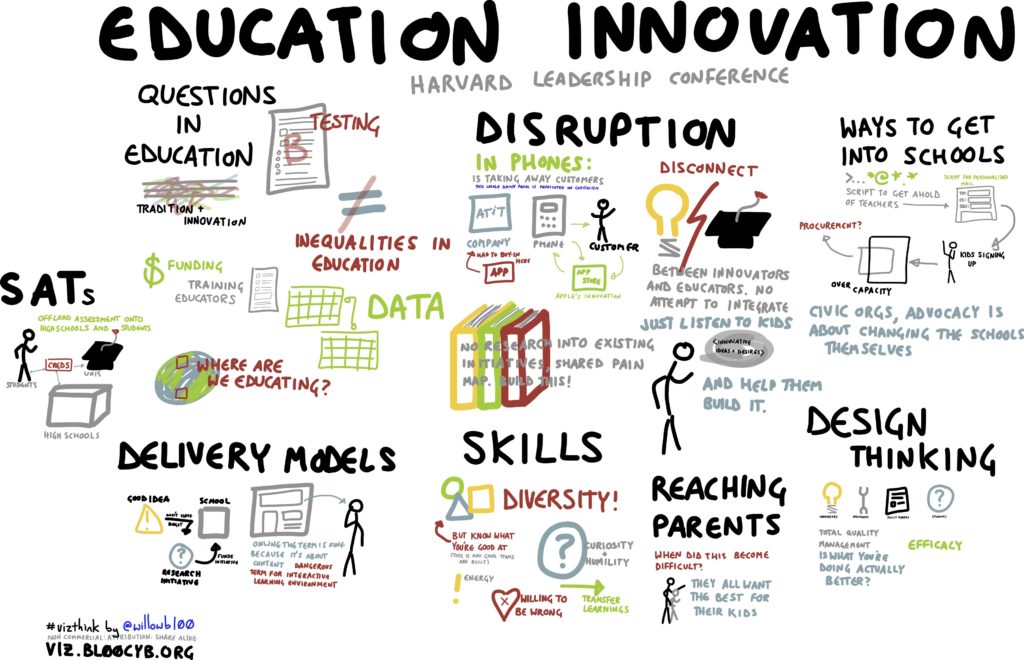 EDUCATION INNOVATION
HARVARD LEADERSHIP CONFERENCE
QUESTIONS
IN
EDUCATION
TRADITION +
INNOVATION
B
TESTING
INEQUALITIES IN
EDUCATION
$ FUNDING
TRAINING
EDUCATORS
DATA
WHERE ARE
WE EDUCATING?
SATs
OFFLOAD ASSESSMENT ONTO
HIGHSCHOOLS AND STUDENTS
STUDENTS
CREDS
UNIS
HIGH SCHOOLS
DISRUPTION
IN PHONES:
IS TAKING AWAY CUSTOMERS
THE WHOLE GAME PANEL IS PREDICATED ON CAPITALISM
AT&T
COMPANY
PHONE
CUSTOMER
HAD TO BUY-IN
HERE
APP
APP
STORE
APPLE'S INNOVATION
NO RESEARCH INTO EXISTING
INITIATIVES, SHARED PAIN
MAP. BUILD THIS!
DISCONNECT
BETWEEN INNOVATORS
AND EDUCATORS. NO
ATTEMPT TO INTEGRATE
JUST LISTEN TO KIDS
<INNOVATIVE
IDEAS + DESIRES>
AND HELP THEM
BUILD IT.
WAYS TO GET
INTO SCHOOLS
>...*@+.*
SCRIPT FOR PERSONALIZED
MAIL
SCRIPT TO GET AHOLD
OF TEACHERS
PROCUREMENT?
KIDS SIGNING
UP
OVER CAPACITY
CIVIC ORGS, ADVOCACY IS
ABOUT CHANGING THE SCHOOLS
THEMSELVES
DELIVERY MODELS
GOOD IDEA
SCHOOL
DON'T HAVE
BUDGET
?
RESEARCH
INITIATIVE
FUNDS
INITIATIVE
ONLINE THE TERM IS FINE
BECAUSE IT'S ABOUT
CONTENT DANGEROUS
TERM FOR INTERACTIVE
LEARNING ENVIRONMENT
SKILLS
DIVERSITY!
BUT KNOW WHAT
YOU'RE GOOD AT
(THIS IS HOW GOOD TEAMS
ARE BUILT)
?
CURIOSITY
+
HUMILITY
! ENERGY
WILLING TO
BE WRONG
TRANSFER
LEARNINGS
REACHING
PARENTS
WHEN DID THIS BECOME
DIFFICULT?
THEY ALL WANT
THE BEST FOR
THEIR KIDS
DESIGN
THINKING
?
STUDENTS
TOTAL QUALITY
MANAGEMENT
IS WHAT YOU'RE
DOING ACTUALLY
BETTER?
EFFICACY
#vizthink by @willowbl00
NON COMMERCIAL: ATTRIBUTION: SHARE ALIKE
VIZ.BL00CYB.ORG